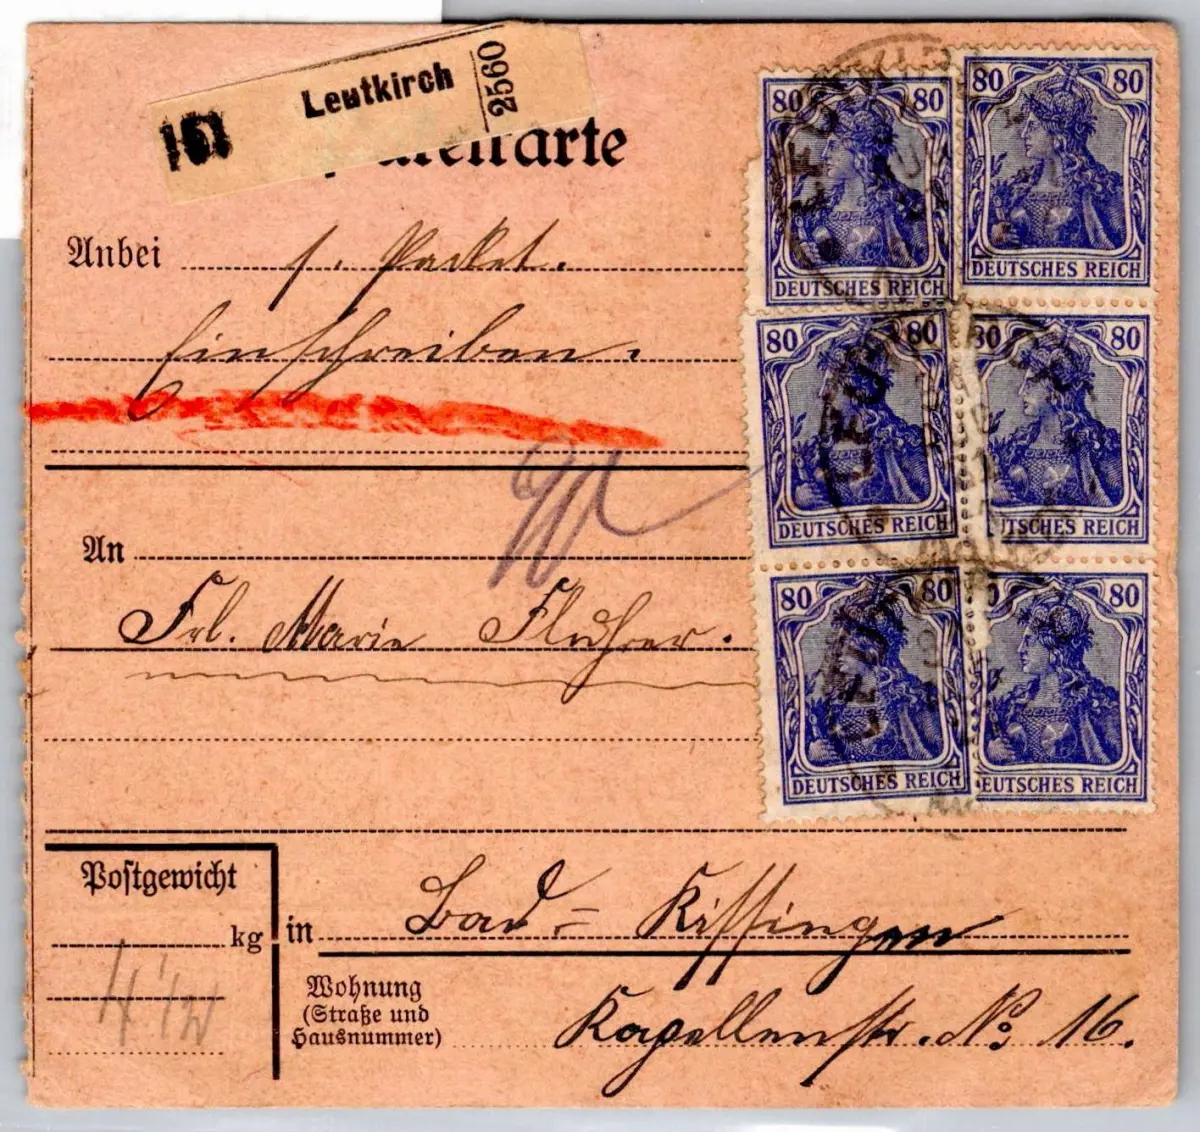 Leutkirch
2560
Anbei 1. Packet.
Einschreiben.
An
Frl. Marie Fluhrer.
Postgewicht
kg
4 1/2
in Bad-Kissingen
Wohnung
(Straße und
Hausnummer)
Kapellenstr. No: 16.
80 80
DEUTSCHES REICH
80 80
DEUTSCHES REICH
80 80
DEUTSCHES REICH
80 80
DEUTSCHES REICH
80 80
DEUTSCHES REICH
80 80
DEUTSCHES REICH